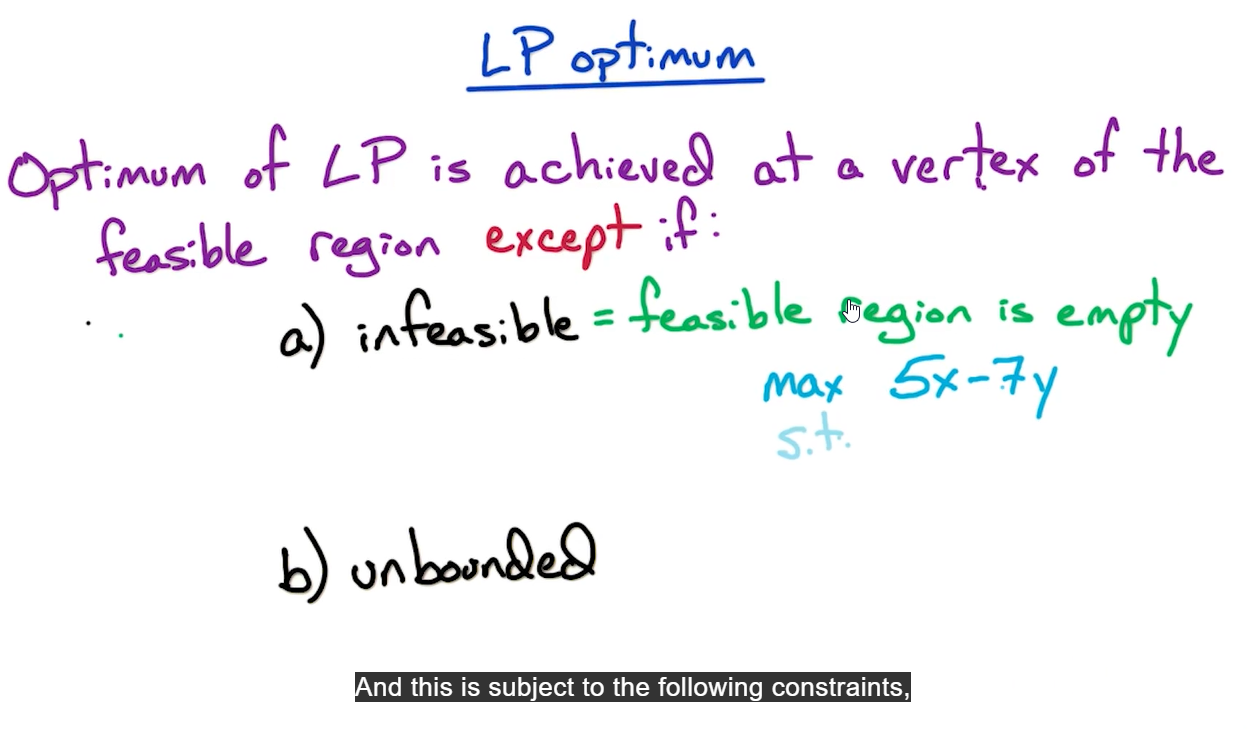 LP optimum
Optimum of LP is achieved at a vertex of the
feasible region except if:
a) infeasible = feasible region is empty
max 5x-7y
s.t.
b) unbounded
And this is subject to the following constraints,